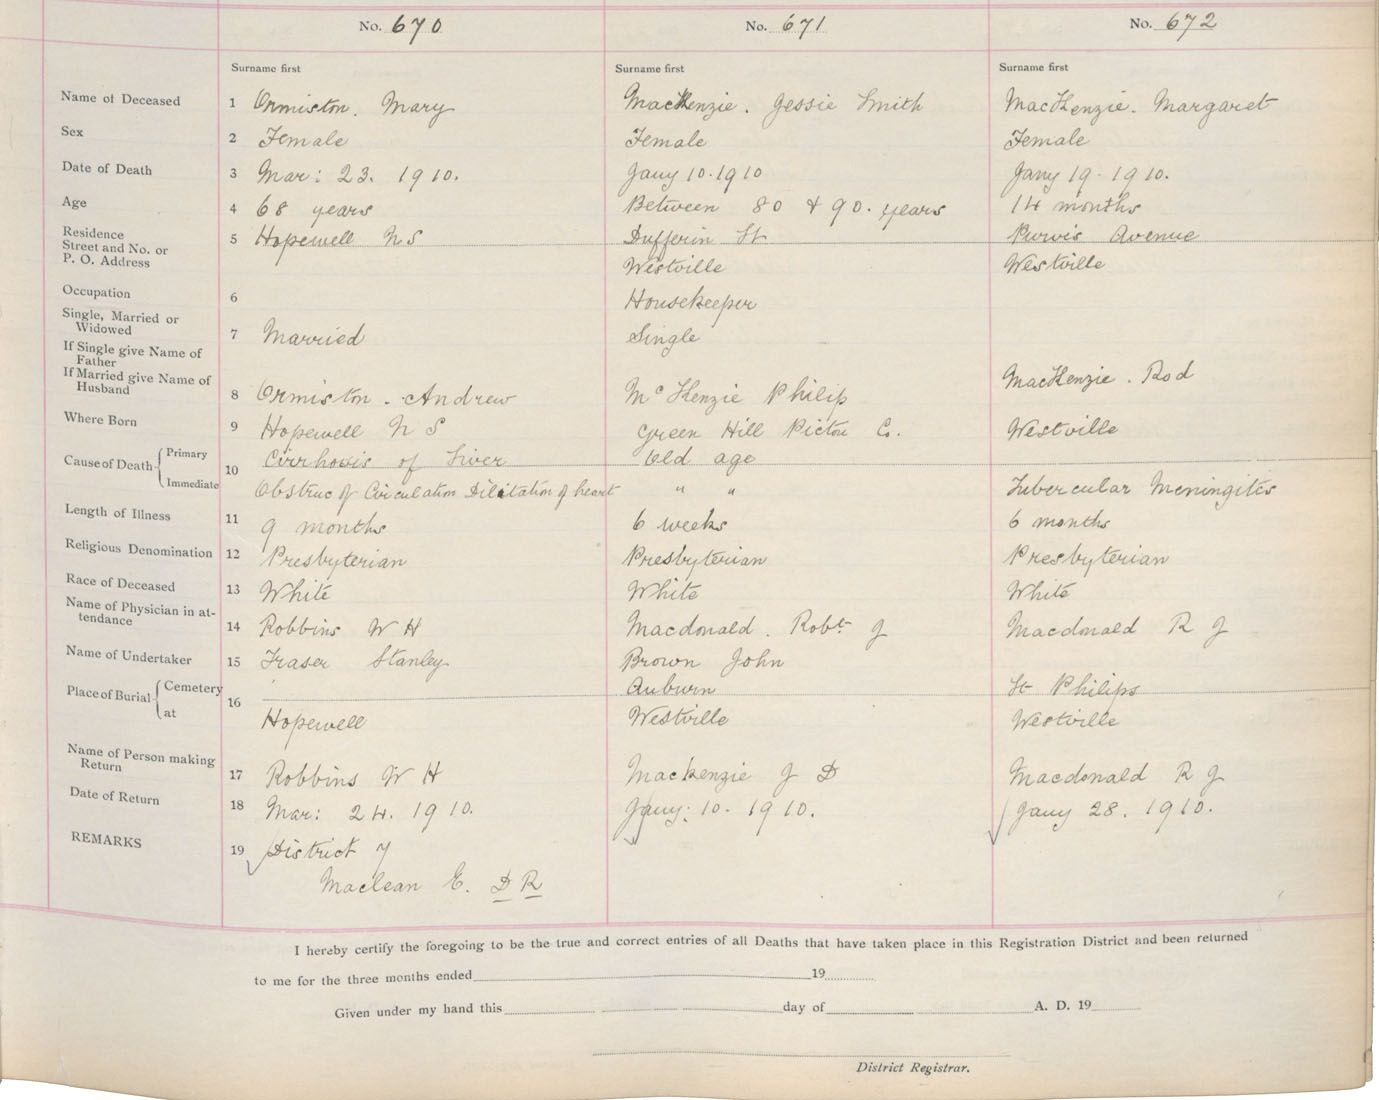 No. 670 No. 671 No. 672
Surname first Surname first Surname first
Name of Deceased 1 Ormiston. Mary MacKenzie. Jessie Smith MacKenzie. Margaret
Sex 2 Female Female Female
Date of Death 3 Mar: 23. 1910. Jany 10. 1910 Jany 19. 1910.
Age 4 68 years Between 80 & 90. years 14 months
Residence
Street and No. or 5 Hopewell N S Dufferin St Purvis Avenue
P. O. Address Westville Westville
Occupation 6 Housekeeper
Single, Married or
Widowed 7 Married Single
If Single give Name of
Father
If Married give Name of MacKenzie. Rod
Husband 8 Ormiston. Andrew Mc Kenzie Philip
Where Born 9 Hopewell N S Green Hill Pictou Co. Westville
Cause of Death Primary 10 Cirrhosis of Liver Old age
Immediate Obstruc of Circulation Dilitation of heart " " Tubercular Meningitis
Length of Illness 11 9 months 6 weeks 6 months
Religious Denomination 12 Presbyterian Presbyterian Presbyterian
Race of Deceased 13 White White White
Name of Physician in at-
tendance 14 Robbins W H Macdonald. Robt J Macdonald R J
Name of Undertaker 15 Fraser Stanley Brown John
Place of Burial Cemetery 16 Auburn St Philips
at Hopewell Westville Westville
Name of Person making
Return 17 Robbins W H Mackenzie J D Macdonald R J
Date of Return 18 Mar: 24. 1910. Jany: 10. 1910. Jany 28. 1910.
REMARKS 19 District 7
Maclean E. D R
I hereby certify the foregoing to be the true and correct entries of all Deaths that have taken place in this Registration District and been returned
to me for the three months ended 19
Given under my hand this day of A. D. 19
District Registrar.